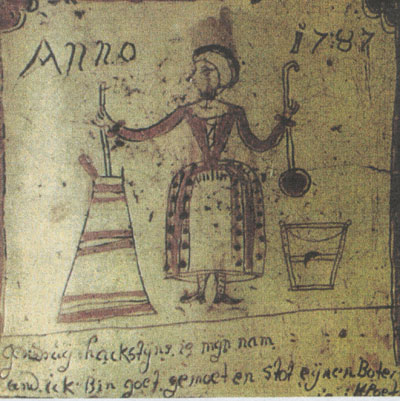 Anno 1787
hackstÿns is myn nam
and ick Bin goet gemoet en Stot eijnen Boter